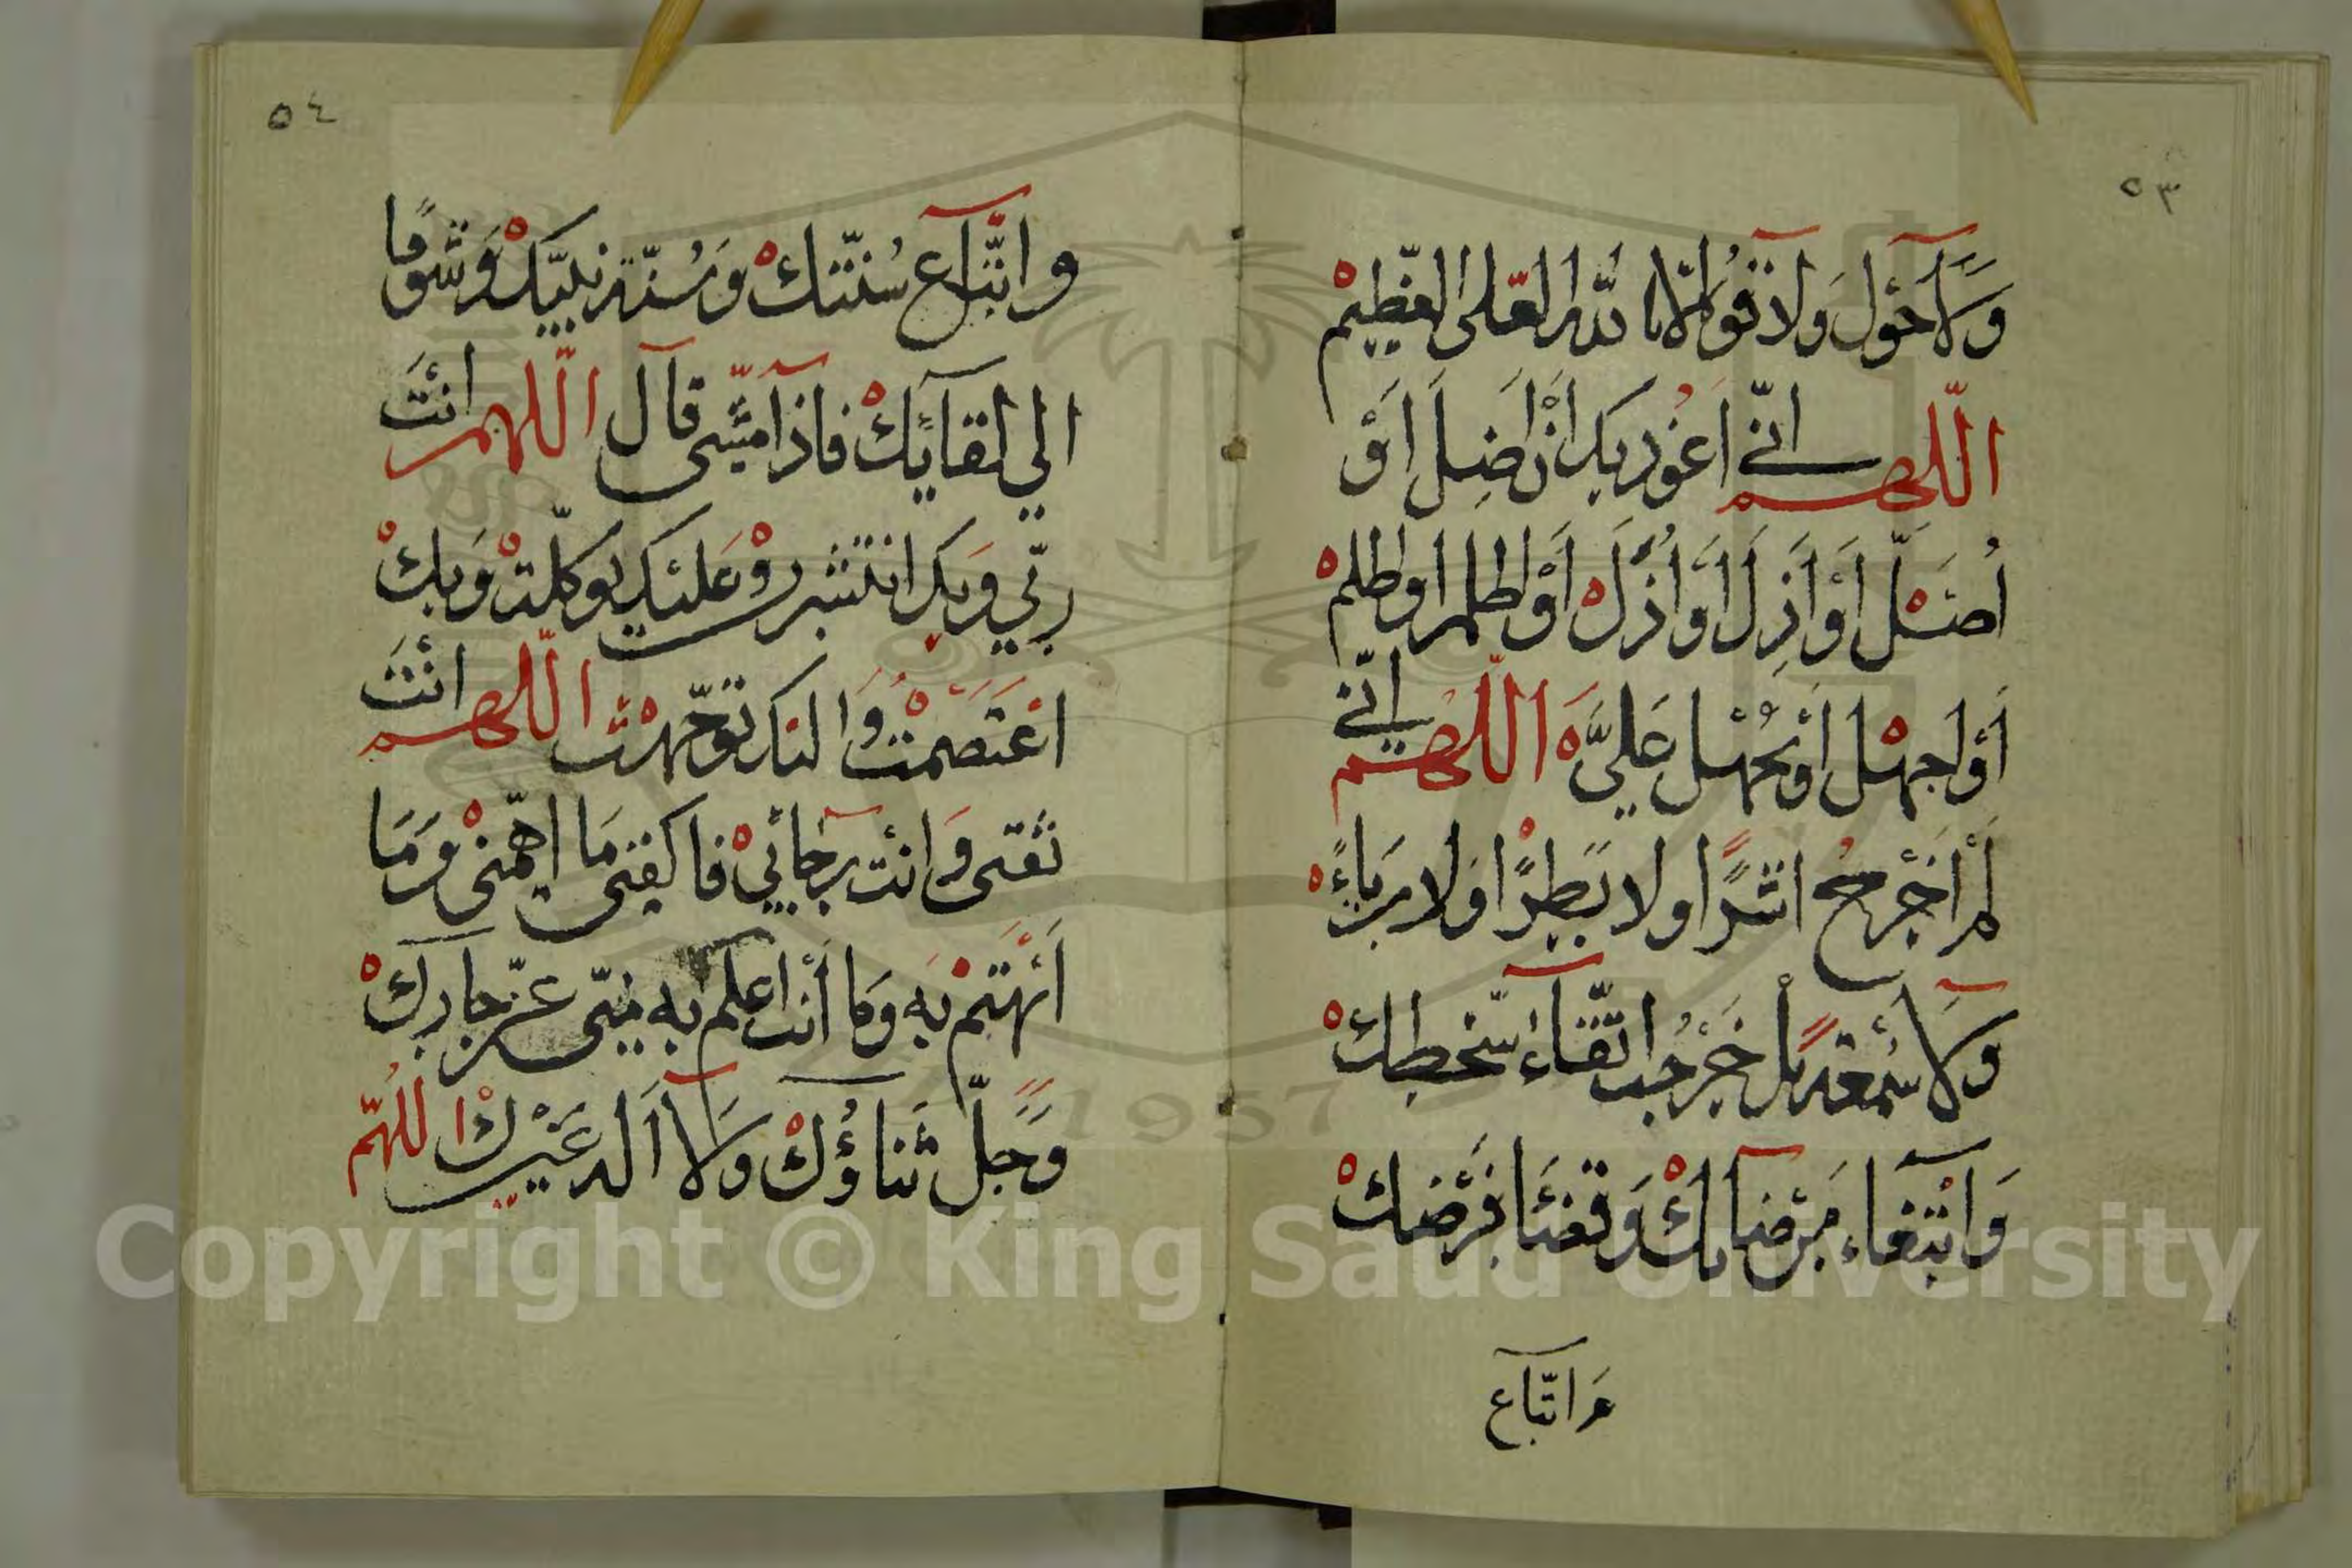 ٥٣
وَلَا حَوْلَ وَلَا قُوَّةَ اِلَّا بِاللّٰهِ الْعَلِىِّ الْعَظِيمْ
اَللّٰهُمَّ اِنِّي اَعُوذُ بِكَ اَنْ اَضِلَّ اَوْ
اُضَلَّ اَوْ اَذِلَّ اَوْ اُذَلَّ اَوْ اَظْلِمَ اَوْ اُظْلَمْ
اَوْ اَجْهَلَ اَوْ يُجْهَلَ عَلَيَّ اَللّٰهُمَّ اِنِّي
لَمْ اَخْرُجْ اَشَرًا وَلَا بَطِرًا وَلَا رِيَاءً
وَلَا سُمْعَةً بَلْ خَرَجْتُ اتِّقَآءَ سَخَطِكْ
وَابْتِغَآءَ مَرْضَاتِكْ وَقَضَآءَ فَرْضِكْ
وَاتِّبَاعِ
٥٤
وَاتِّبَاعِ سُنَّتِكْ وَسُنَّةِ نَبِيِّكْ وَشَوْقًا
اِلَي لِقَآئِكْ فَاِذَا مَشَى قَالَ اَللّٰهُمَّ اَنْتَ
رَبِّي وَبِكَ انْتَشَرْتُ وَعَلَيْكَ تَوَكَّلْتُ وَبِكْ
اعْتَصَمْتُ وَاِلَيْكَ تَوَجَّهْتُ اَللّٰهُمَّ اَنْتَ
ثِقَتِى وَاَنْتَ رَجَآئِي فَاكْفِنِى مَا اَهَمَّنِى وَمَا
اَهْتَمُّ بِهِ وَمَا اَنْتَ اَعْلَمُ بِهِ مِنِّى عَزَّ جَارُكْ
وَجَلَّ ثَنَاؤُكْ وَلَا اِلَهَ غَيْرُكْ اَللّٰهُمَّ
Copyright © King Saud University
1957